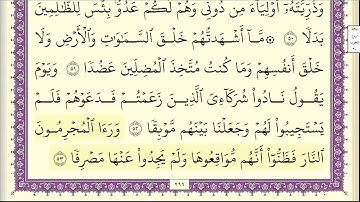 وَذُرِّيَّتَهُۥٓ أَوْلِيَآءَ مِن دُونِى وَهُمْ لَكُمْ عَدُوٌّۢ بِئْسَ لِلظَّٰلِمِينَ
بَدَلًا ۝٥٠ ۞ مَّآ أَشْهَدتُّهُمْ خَلْقَ ٱلسَّمَٰوَٰتِ وَٱلْأَرْضِ وَلَا
خَلْقَ أَنفُسِهِمْ وَمَا كُنتُ مُتَّخِذَ ٱلْمُضِلِّينَ عَضُدًا ۝٥١ وَيَوْمَ
يَقُولُ نَادُوا۟ شُرَكَآءِىَ ٱلَّذِينَ زَعَمْتُمْ فَدَعَوْهُمْ فَلَمْ
يَسْتَجِيبُوا۟ لَهُمْ وَجَعَلْنَا بَيْنَهُم مَّوْبِقًا ۝٥٢ وَرَءَا ٱلْمُجْرِمُونَ
ٱلنَّارَ فَظَنُّوٓا۟ أَنَّهُم مُّوَاقِعُوهَا وَلَمْ يَجِدُوا۟ عَنْهَا مَصْرِفًا ۝٥٣
٢٩٩